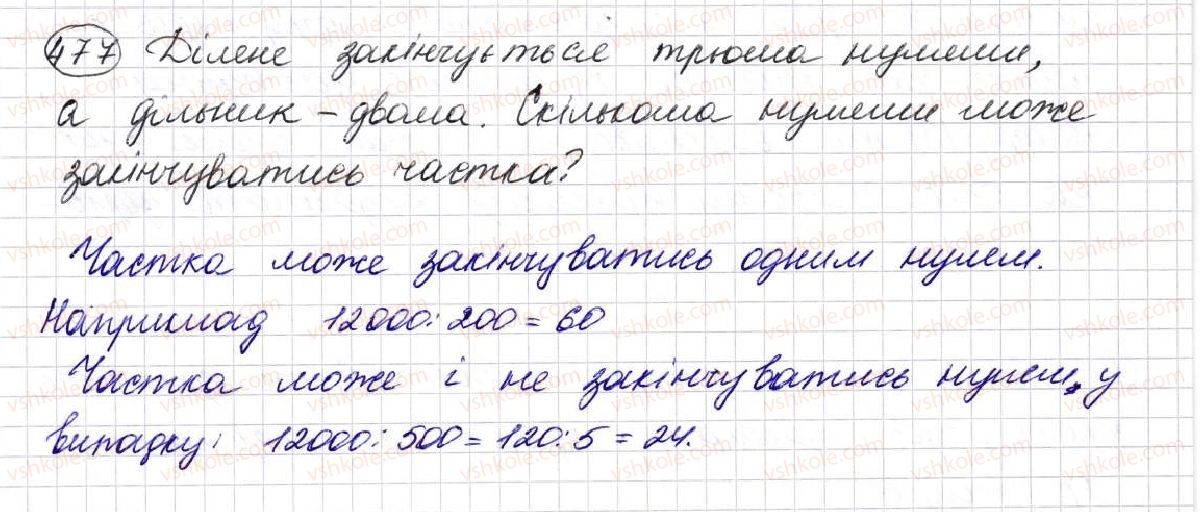 477 Ділене закінчується трьома нулями,
а дільник – двома. Скількома нулями може
закінчуватись частка?
Частка може закінчуватись одним нулем.
Наприклад 12000:200=60
Частка може і не закінчуватись нулем, у
випадку: 12000:500=120:5=24.